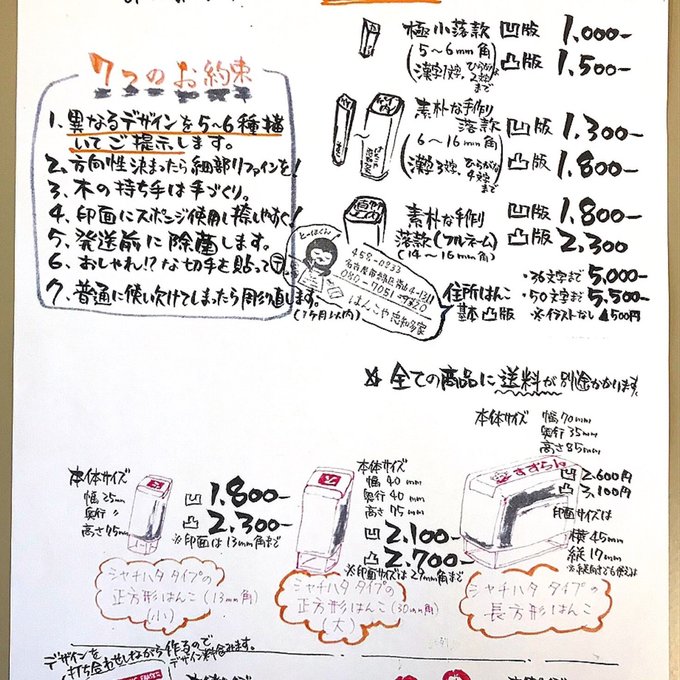 7つのお約束
1、異なるデザインを5~6種描
いてご提示します。
2、方向性決まったら細部リファインを!
3、木の持ち手は手づくり。
4、印面にスポンジ使用し捺しやすく!
5、発送前に除菌します。
6、おしゃれ!?な切手を貼って〒
7、普通に使い欠けてしまったら彫り直します。
(1ヶ月以内)
極小落款 凹版 1,000-
(5~6mm角) 凸版 1,500-
漢字1文字、ひらがな2文字まで
素朴な手作り
落款 凹版 1,300-
6~16mm角 凸版 1,800-
(漢字3文字、ひらがな4文字まで)
素朴な手作り 凹版 1,800-
落款(フルネーム) 凸版 2,300
(14~16mm角)
458-0833
はんこや忠和多家
住所はんこ
基本凸版
・36文字まで 5,000-
・50文字まで 5,500-
※イラストなし 4500円
※全ての商品に送料が別途かかります。
本体サイズ
幅35mm
奥行〃
高さ75mm
凹 1,800-
凸 2,300-
※印面は13mm角まで
シャチハタタイプの
正方形はんこ(13mm角)
(小)
本体サイズ
幅40mm
奥行40mm
高さ75mm
凹 2,100-
凸 2,700-
※印面サイズは29mm角まで
シャチハタタイプの
正方形はんこ(30mm角)
(大)
本体サイズ 幅70mm
奥行35mm
高さ85mm
すずらん
凹 2,600円
凸 3,100円
印面サイズは
横45mm
縦17mm
シャチハタタイプの
長方形はんこ
デザインを
打ち合わせしながら作るので
デザイン料含みます。